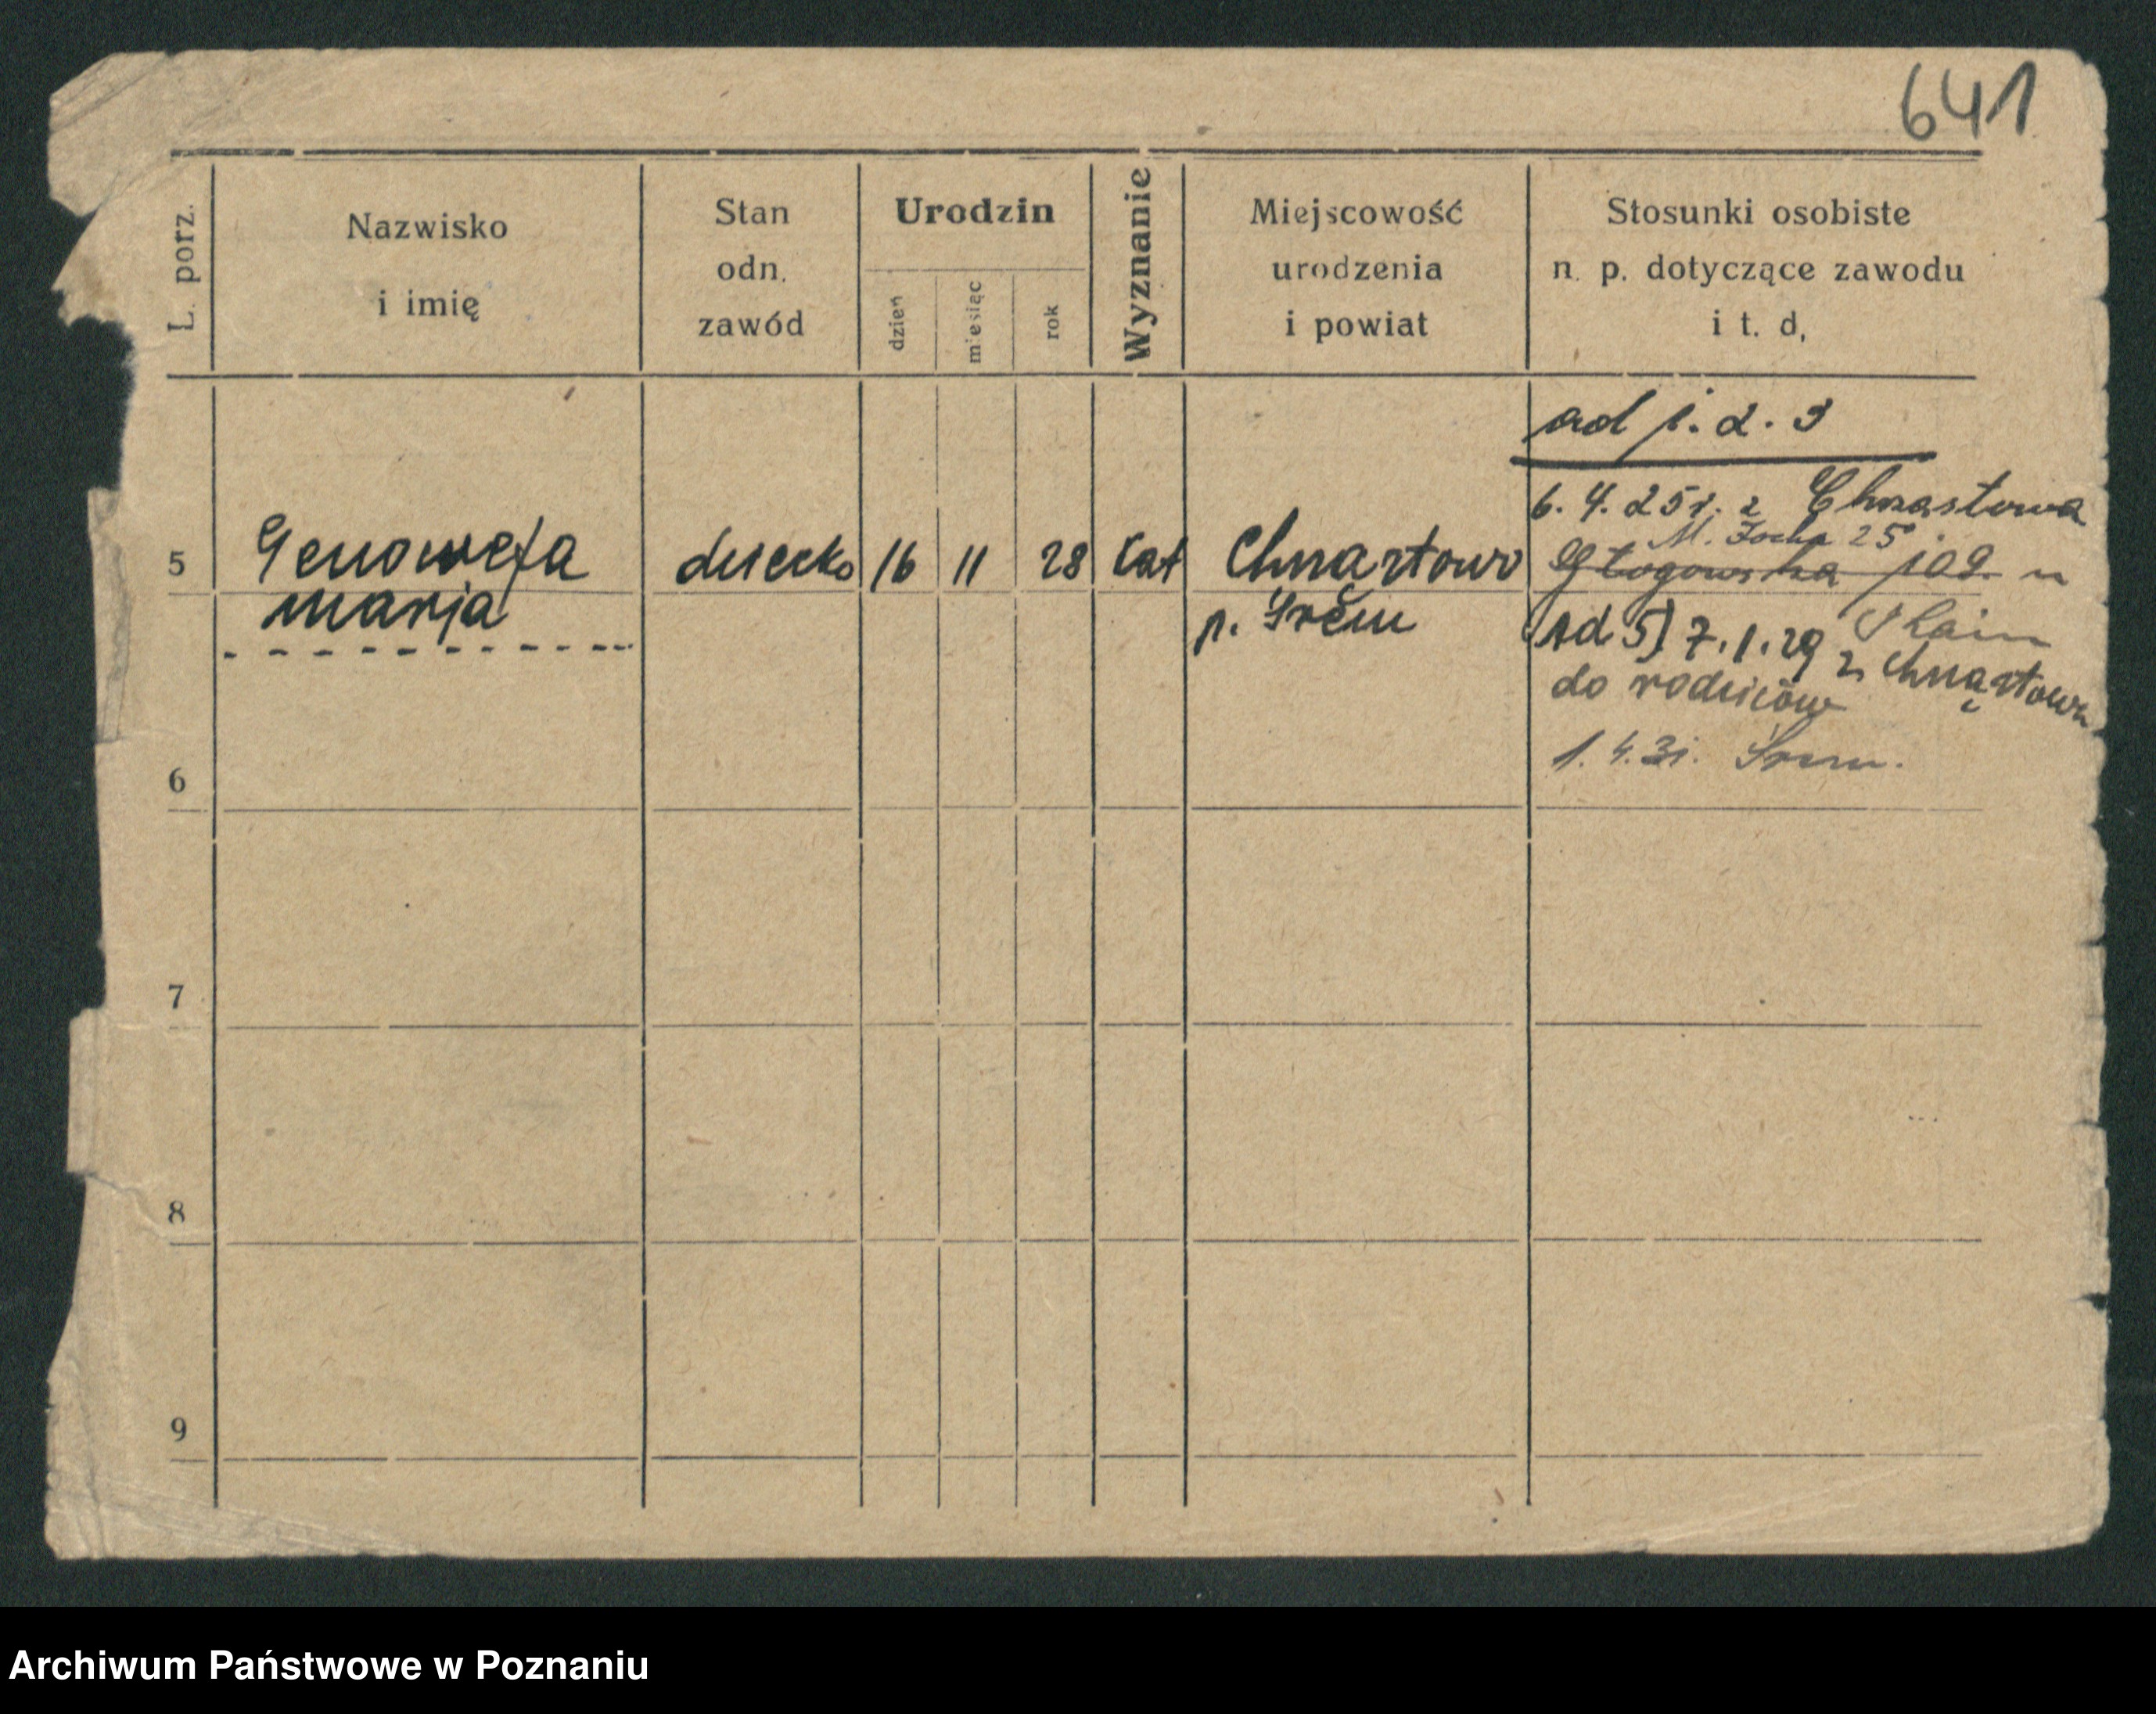 641
L. porz.
Nazwisko
i imię
Stan
odn.
zawód
Urodzin
dzień
miesiąc
rok
Wyznanie
Miejscowość
urodzenia
i powiat
Stosunki osobiste
n. p. dotyczące zawodu
i t. d.
ad 1. 2. 3
6. 4. 25 r. z Chrząstowa
M. Focha 25
Głogowska 109. u
5 Genowefa dziecko 16 11 28 kat Chrząstowo
Marja
p. Śrem
ad 5) 7. 1. 29 z Chrząstowa
do rodziców
1. 4. 31. Śrem.
6
7
8
9
Archiwum Państwowe w Poznaniu